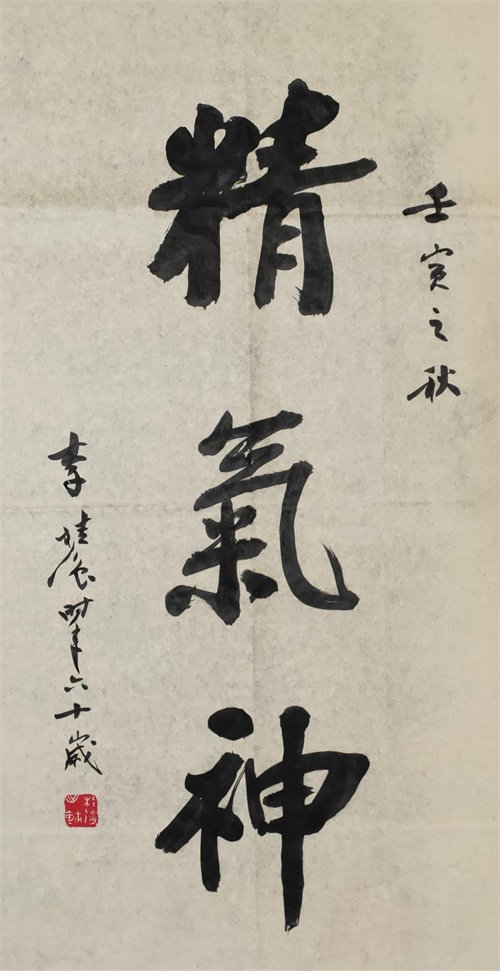 壬寅之秋
精氣神
李 时年六十歲